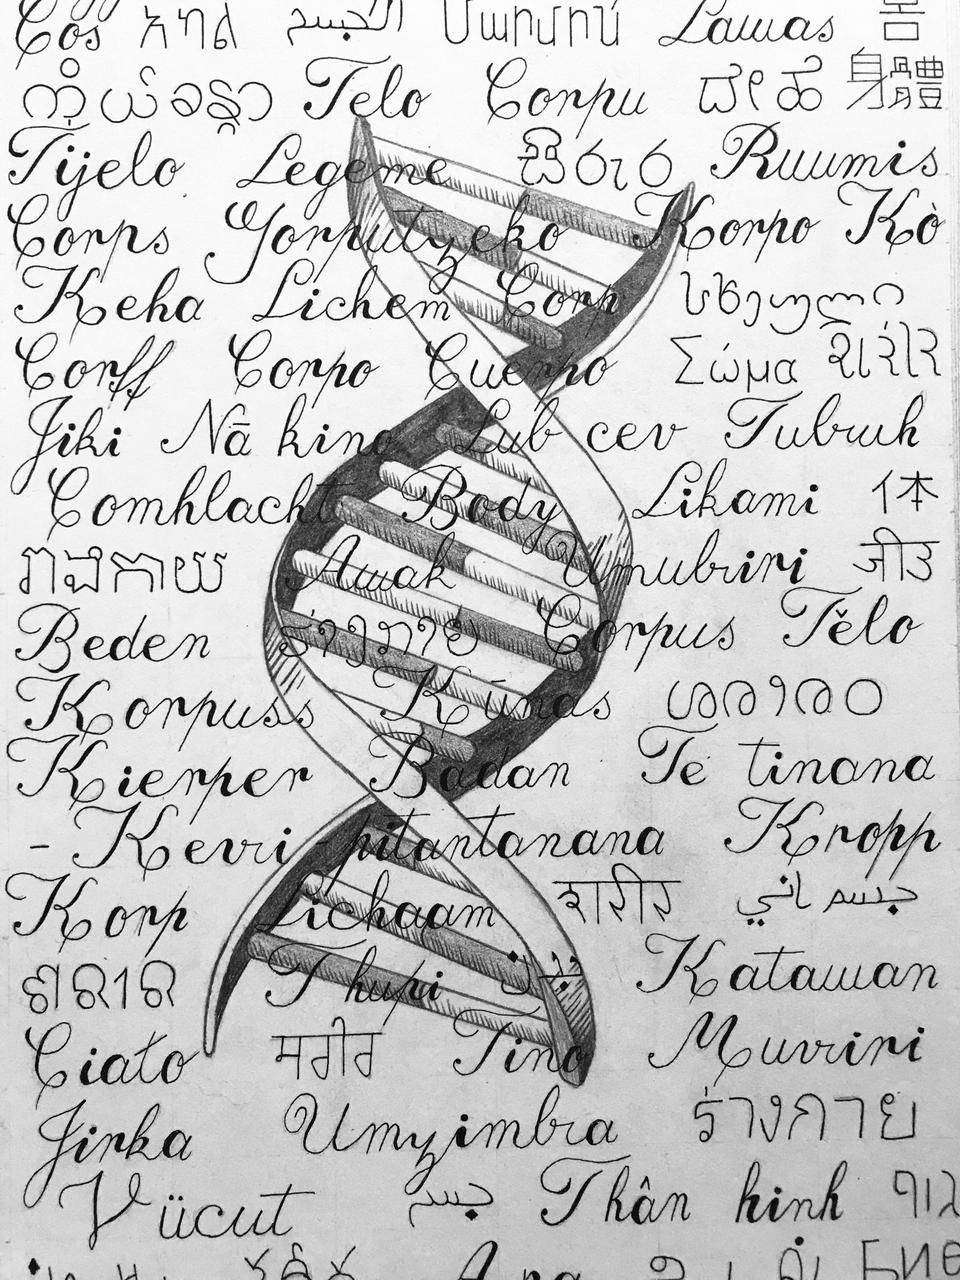 Cos አካል الجسم Մարմին Lawas 몸
ကိုယ်ခန္ဓာ Telo Corpu ದೇಹ 身體
Tijelo Legeme සිරුර Ruumis
Corps Gorputzeko Korpo Kò
Keha Lichem Corp სხეული
Corff Corpo Cuerpo Σώμα શરીર
Jiki Nā kino Lub cev Tubuh
Comhlacht Body Likami 体
រាងកាយ Awak Umubiri
Beden ຮ່າງກາຍ Corpus Tělo
Korpuss Kūnas ശരീരം
Kierper Badan Te tinana
- Kevri-pitantanana Kropp
Korp Lichaam शरीर جسماني
ଶରୀର Thupi بدن Katawan
Ciało सरीर Tino Muviri
Jirka Umzimba ร่างกาย
Vücut جسم Thân hình